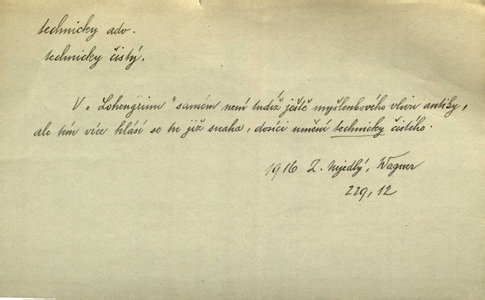 technicky adv.
technicky čistý.
V „Lohengrinu" samém není tudíž ještě myšlenkového vlivu antiky,
ale tím více hlásí se tu již snaha, docíliti umění technicky čistého.
1916 Z. Nejedlý, Wagner
229, 12